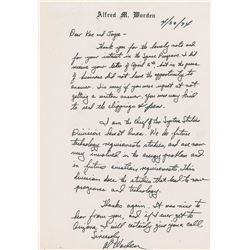 Alfred M. Worden
7/30/74
Dear Ken and Joyce -
Thank you for the lovely note and
for your interest in the Space Program. I did
receive your letter of April 2nd, but in the press
of business did not have the opportunity to
answer. I'm sorry if you were upset at not
getting a written answer. You were very kind
to send the clippings
I am the Chief of the Systems Studies
Division here at Ames. We do future
technology requirements studies, and are now
very involved in the energy problem and
in future aviation requirements. This
division does the studies that lead to new
programs and technology.
Thanks again. It was nice to
hear from you, and if I ever get to
I will certainly give you a call
Sincerely
Al Worden